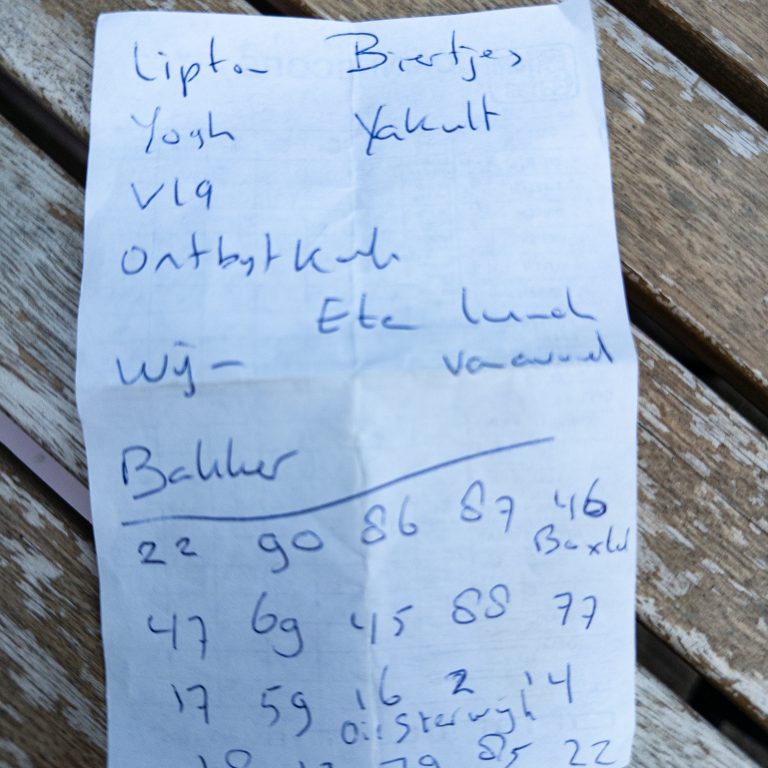 Lipton Biertjes
Yogh Yakult
Vla
Ontbytkuk
Ete lunch
Wijn vanavond
Bakker
22 90 86 87 46
Boxtel
47 69 45 88 77
17 59 16 2 14
Oisterwijk
79 85 22